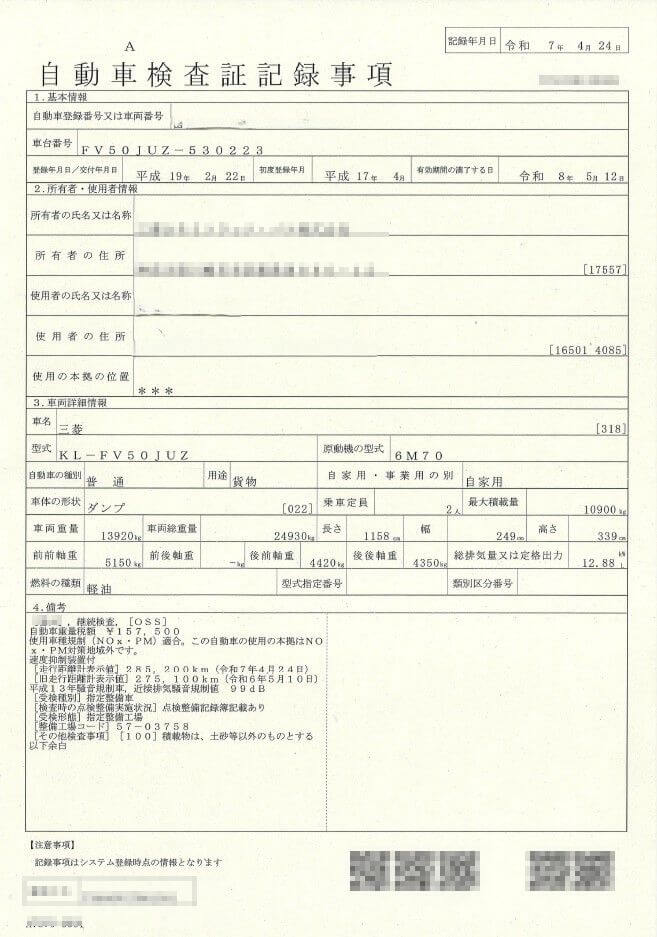 記録年月日 令和 7年 4月 24日
A
自動車検査証記録事項
1.基本情報
自動車登録番号又は車両番号
車台番号 FV50JUZ-530223
登録年月日/交付年月日 平成 19年 2月 22日 初度登録年月 平成 17年 4月 有効期間の満了する日 令和 8年 5月 12日
2.所有者・使用者情報
所有者の氏名又は名称
所有者の住所 [17557]
使用者の氏名又は名称
使用者の住所 [16501 4085]
使用の本拠の位置 ***
3.車両詳細情報
車名 三菱 [318]
型式 KL-FV50JUZ 原動機の型式 6M70
自動車の種別 普通 用途 貨物 自家用・事業用の別 自家用
車体の形状 ダンプ [022] 乗車定員 2人 最大積載量 10900kg
車両重量 13920kg 車両総重量 24930kg 長さ 1158cm 幅 249cm 高さ 339cm
前前軸重 5150kg 前後軸重 -kg 後前軸重 4420kg 後後軸重 4350kg 総排気量又は定格出力 12.88 kW L
燃料の種類 軽油 型式指定番号 類別区分番号
4.備考
,継続検査,[OSS]
自動車重量税額 ¥157,500
使用車種規制(NOx・PM)適合。この自動車の使用の本拠はNO
x・PM対策地域外です。
速度抑制装置付
[走行距離計表示値]285,200km(令和7年4月24日)
[旧走行距離計表示値]275,100km(令和6年5月10日)
平成13年騒音規制車,近接排気騒音規制値 99dB
[受検種別]指定整備車
[検査時の点検整備実施状況]点検整備記録簿記載あり
[受検形態]指定整備工場
[整備工場コード]57-03758
[その他検査事項][100]積載物は、土砂等以外のものとする
以下余白
【注意事項】
記録事項はシステム登録時点の情報となります